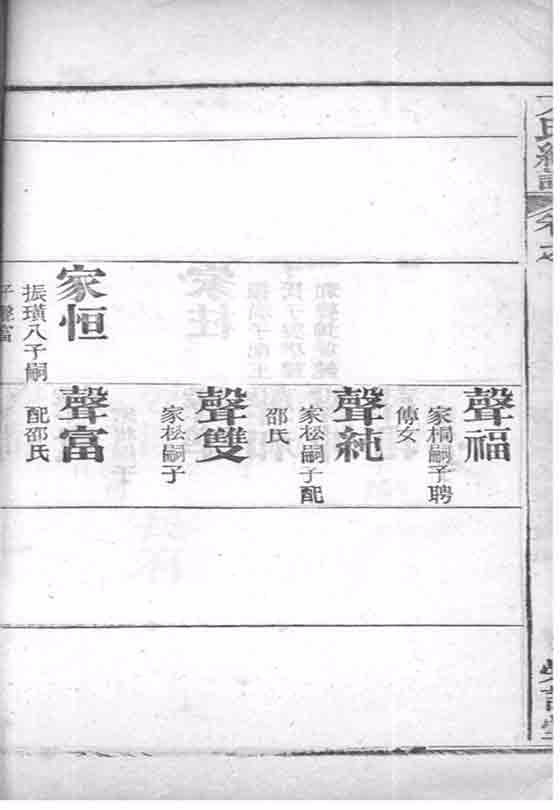 家恒
振璜八子嗣
子聲富
聲福
家桐嗣子聘
傅女
聲純
家松嗣子配
邵氏
聲雙
家松嗣子
聲富
配邵氏